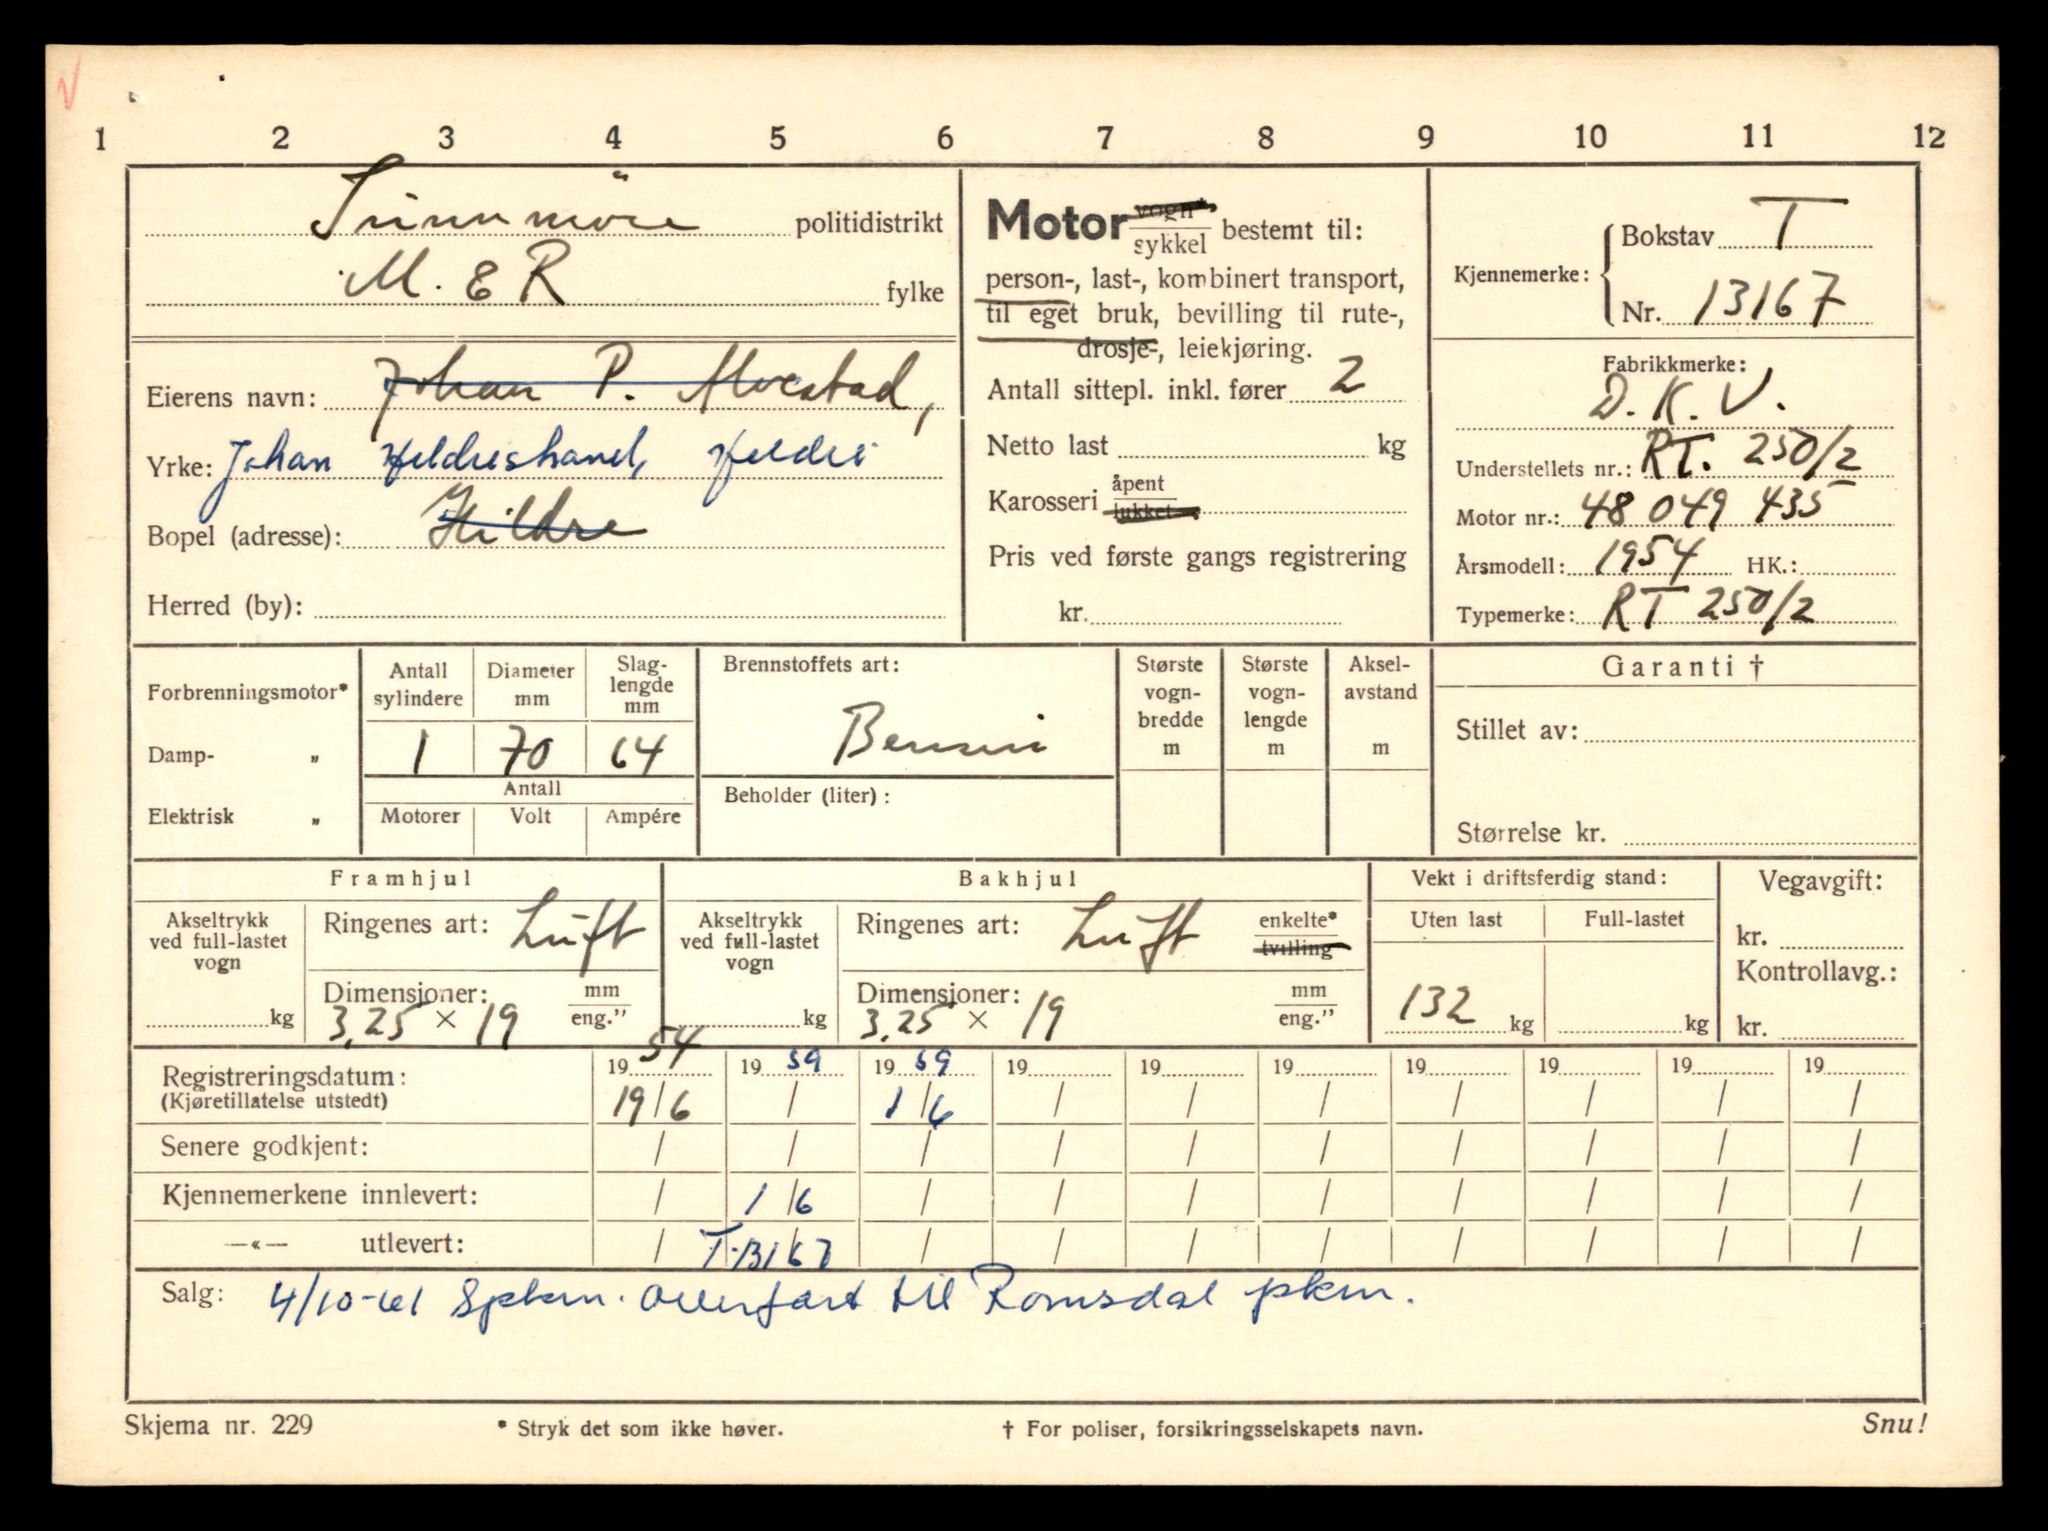 1 2 3 4 5 6 7 8 9 10 11 12
Sunnmöre politidistrikt
M. & R fylke
Eierens navn: Johan P. Alvestad,
Yrke: Johan Hildrestrand, Hildre
Bopel (adresse): Hildre
Herred (by):
Motor vogn* sykkel bestemt til:
person-, last-, kombinert transport,
til eget bruk, bevilling til rute-,
drosje-, leiekjøring.
Antall sittepl. inkl. fører 2
Netto last kg
Karosseri åpent lukket
Pris ved første gangs registrering
kr.
Kjennemerke: Bokstav T
Nr. 13167
Fabrikkmerke:
D.K.V.
Understellets nr.: RT. 250/2
Motor nr.: 48 049 435
Årsmodell: 1954 HK.:
Typemerke: RT 250/2
Forbrenningsmotor*
Damp- „
Elektrisk „
Antall sylindere Diameter mm Slag-lengde mm
1 70 64
Antall
Motorer Volt Ampére
Brennstoffets art:
Bensin
Beholder (liter):
Største vogn-bredde m
Største vogn-lengde m
Aksel-avstand m
Garanti †
Stillet av:
Størrelse kr.
Framhjul
Akseltrykk ved full-lastet vogn kg
Ringenes art: Luft
Dimensjoner: mm eng."
3,25 × 19
Bakhjul
Akseltrykk ved full-lastet vogn kg
Ringenes art: Luft enkelte* tvilling
Dimensjoner: mm eng."
3,25 × 19
Vekt i driftsferdig stand:
Uten last Full-lastet
132 kg kg
Vegavgift:
kr.
Kontrollavg.:
kr.
Registreringsdatum: 1954 1959 1959 19 19 19 19 19 19 19
(Kjøretillatelse utstedt) 19/6 / 1/6 / / / / / / /
Senere godkjent: / / / / / / / / / /
Kjennemerkene innlevert: / 1/6 / / / / / / / /
—«— utlevert: / T-13167 / / / / / / / /
Salg: 4/10-61 Spkm. Overført til Romsdal pkm.
Skjema nr. 229 * Stryk det som ikke høver. † For poliser, forsikringsselskapets navn. Snu!